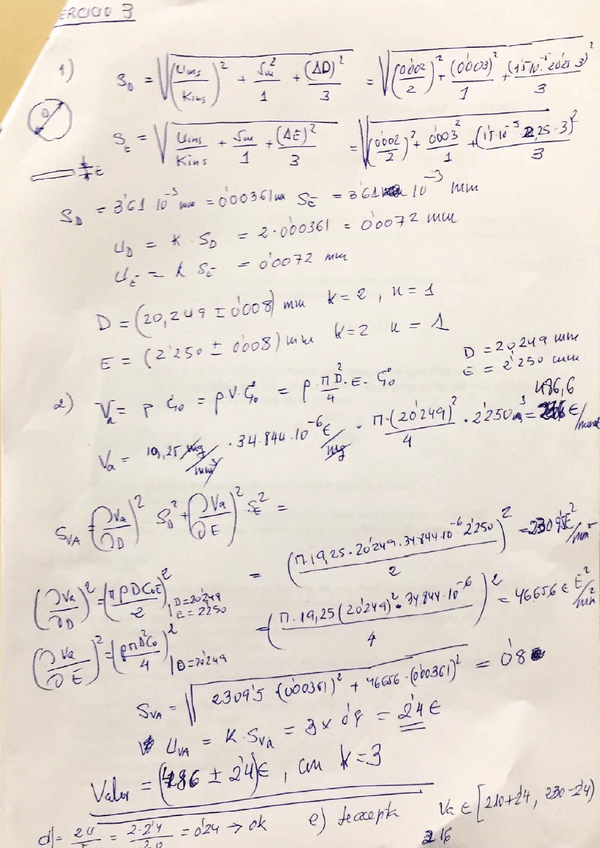 ERCICIO 3
1) S_D = √((U_ins/K_ins)² + S_m²/1 + (ΔD)²/3) = √((0'002/2)² + (0'003)²/1 + (1'5·10⁻⁵·20'25·3)²/3)
D
S_E = √((U_ins/K_ins) + S_m/1 + (ΔE)²/3) = √((0'002/2)² + 0'003²/1 + (1'5·10⁻⁵·2,25·3)²/3)
E
S_D = 3'61 10⁻³ mm = 0'00361 mm S_E = 3'61 10⁻³ mm
U_D = K S_D = 2·0'00361 = 0'0072 mm
U_E = K S_E = 0'0072 mm
D = (20,249 ± 0'008) mm K=2, n=1
E = (2'250 ± 0'008) mm K=2 n=1
D = 20'249 mm
E = 2'250 mm
2) V_a = ρ·C_0 = ρ V·C_0 = ρ·πD²/4·E·C_0
V_a = 19,25 mg/mm³ · 34.844·10⁻⁶ €/mg · π·(20'249)²/4 · 2'250 = 486,6 €/
S_VA = (∂Va/∂D)² S_D² + (∂Va/∂E)² S_E² =
(∂Va/∂D)² = (πρDC_0E/2)² | D=20'249 E=2'250 = (π·19,25·20'249·34.844·10⁻⁶ 2'250/2)² = 2309'5 €²/mm²
(∂Va/∂E)² = (ρπD²C_0/4)² | D=20'249 = (π·19,25(20'249)²·34.844·10⁻⁶/4)² = 46656 €²/mm²
S_VA = √(2309'5 (0'00361)² + 46656·(0'00361)²) = 0'8
U_VA = K·S_Va = 3 x 0'8 = 2'4 €
Valor = (486 ± 2'4) €, con K=3
d) = 2U/ = 2·2'4/20 = 0'24 → ok e) Se acepta Va ∈ [210+2'4, 230-2'4]
216